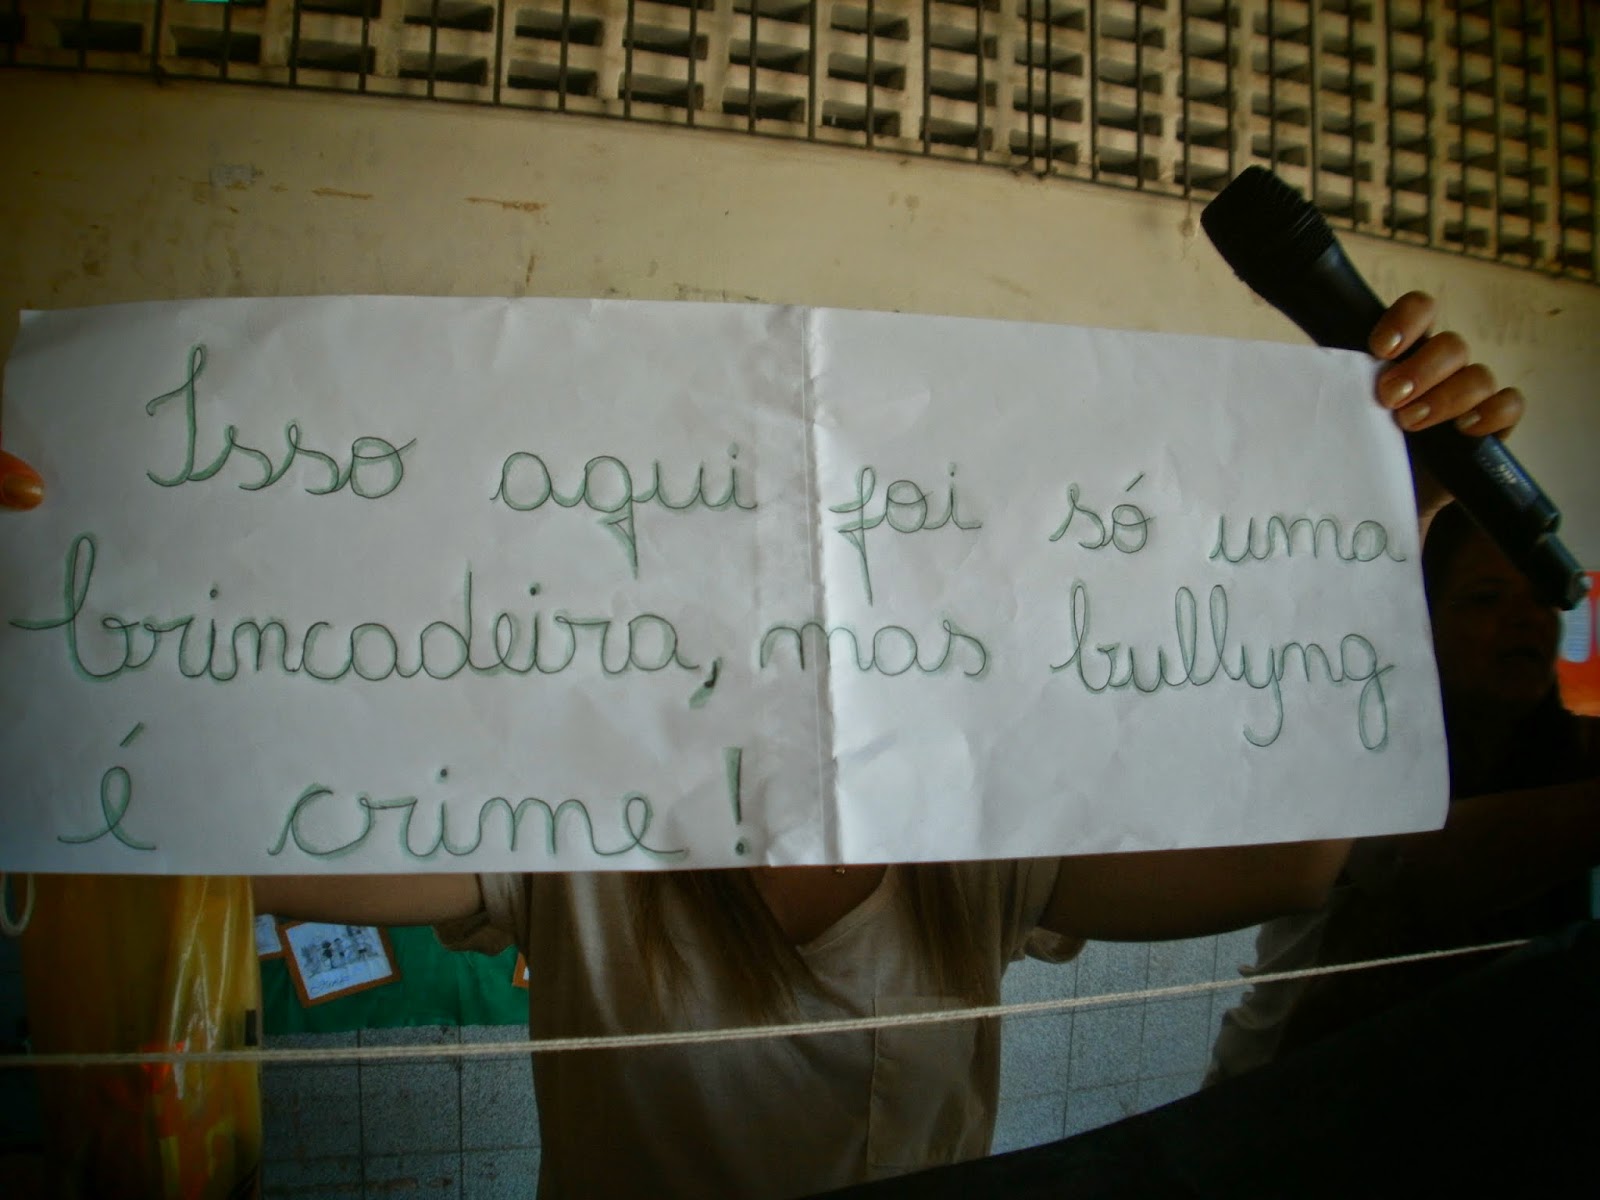 Isso aqui foi só uma
brincadeira, mas bullyng
é crime!